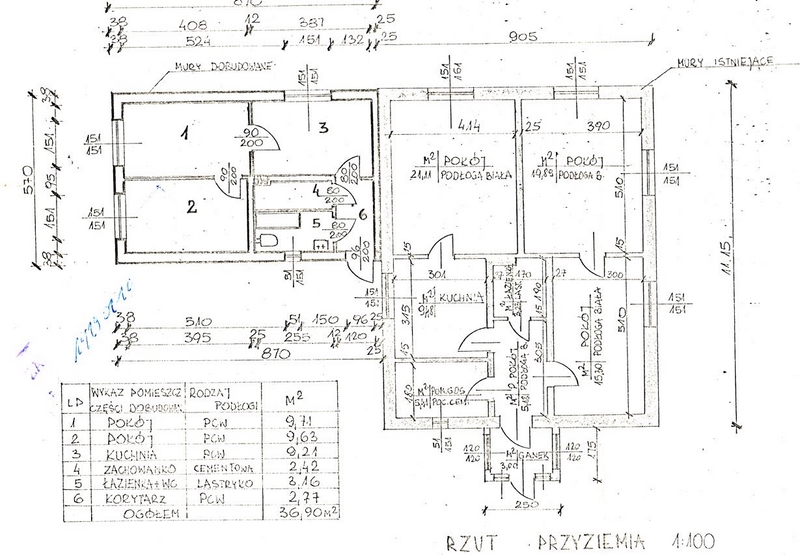 870
38 408 12 387 25
38 524 151 132 25 905
MURY DOBUDOWANE
MURY ISTNIEJĄCE
151
151
151
151
151
151
570
38 151 95 151 38
1
90
200
3
90
200
80
200
2
4
80
200
5
80
200
6
96
200
51
151
151
151
151
151
4.14 25 390
M² POKÓJ
21,11 PODŁOGA BIAŁA
M² POKÓJ
19,89 PODŁOGA B.
510
151
151
15
15
11.15.
301
M² KUCHNIA
315
15
151
151
170
M² ŁAZIENKA
190
15
27 300
POKÓJ
M² PODŁOGA BIAŁA
15,30
510
151
151
M² P. POKÓJ
5,18 PODŁOGA B.
305
180
M² POM.GOS.
POC.CEM.
51
151
120
120
M² GANEK
120
120
175
250
38 510 51 150 96 25
38 395 25 255 12 120
870 25
LP WYKAZ POMIESZCZ CZĘŚCI DOBUDOWAN. RODZAJ PODŁOGI M²
1 POKÓJ PCW 9,71
2 POKÓJ PCW 9,63
3 KUCHNIA PCW 9,21
4 ZACHOWANKO CEMENTOWA 2,42
5 ŁAZIENKA+WC LASTRYKO 3,16
6 KORYTARZ PCW 2,77
OGÓŁEM 36,90M²
RZUT PRZYZIEMIA 1:100